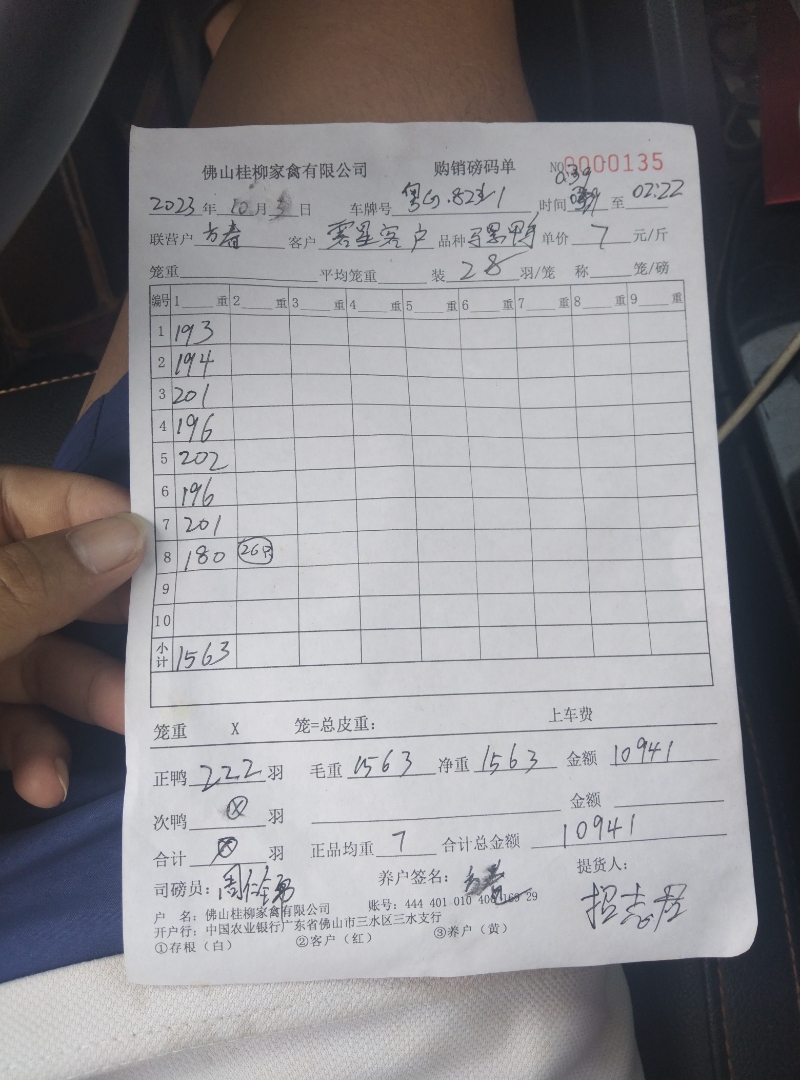 佛山桂柳家禽有限公司 购销磅码单 NO 0000135
0:39
2023年10月3日 车牌号 时间 至 02:22
联营户 方春 客户 零星客户 品种 单价 7 元/斤
笼重 平均笼重 装 28 羽/笼 称 笼/磅
编号 1 重 2 重 3 重 4 重 5 重 6 重 7 重 8 重 9 重
1 193
2 194
3 201
4 196
5 202
6 196
7 201
8 180 26羽
9
10
小计 1563
笼重 X 笼=总皮重: 上车费
正鸭 222 羽 毛重 1563 净重 1563 金额 10941
次鸭 羽 金额
合计 羽 正品均重 7 合计总金额 10941
司磅员: 养户签名: 方春 提货人:
户 名: 佛山桂柳家禽有限公司 账号: 444 401 010 400 169 29
开户行: 中国农业银行广东省佛山市三水区三水支行
①存根(白) ②客户(红) ③养户(黄)